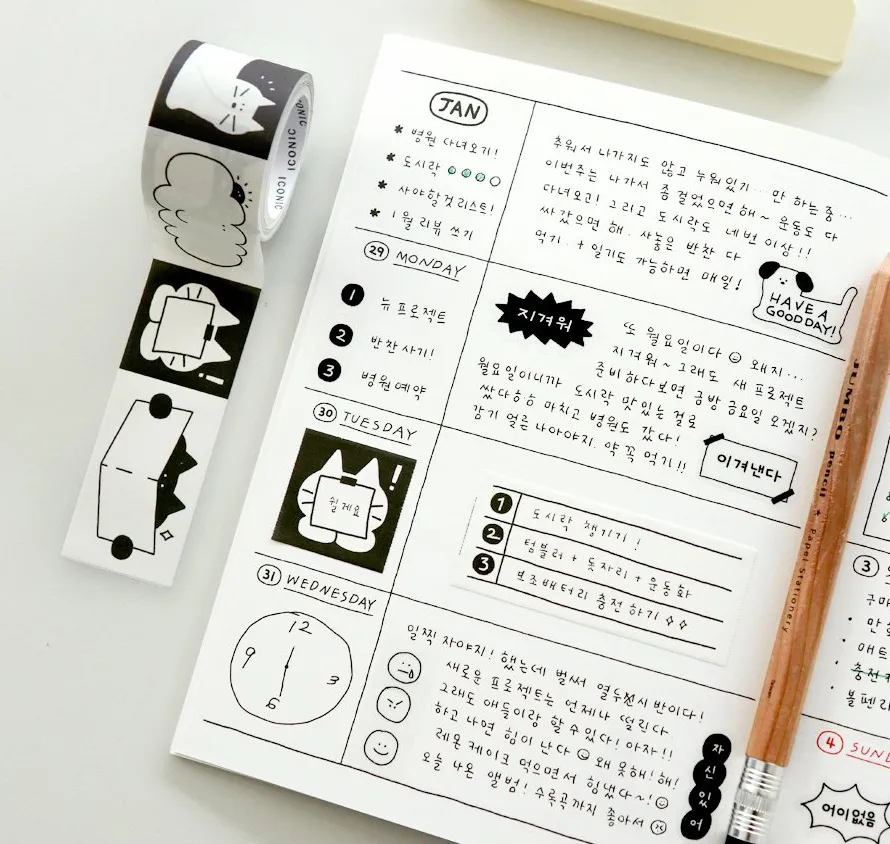 JAN
* 병원 다녀오기!
* 도시락
* 사야할것리스트!
* 1월 리뷰 쓰기
추워서 나가지도 않고 누워있기... 만 하는 중...
이번주는 나가서 좀 걸었으면 해~ 운동도 다
다녀오고! 그리고 도시락도 네번 이상!!
싸 갔으면 해. 사놓은 반찬 다
먹기. + 일기도 가능하면 매일!
HAVE A
GOOD DAY!
29 MONDAY
1 뉴 프로젝트
2 반찬사기!
3 병원예약
지겨워
또 월요일이다 왜지...
지겨워~ 그래도 새 프로젝트
준비하다보면 금방 금요일 오겠지?
월요일이니까 도시락 맛있는 걸로
쌌다하하 마치고 병원도 갔다!
감기 얼른 나아야지. 약 꼭 먹기!!
이겨낸다
30 TUESDAY
!
쉴게요
1 도시락 챙기기!
2 텀블러 + 돗자리 + 운동화
3 보조배터리 충전하기
31 WEDNESDAY
12
9
3
6
일찍 자야지! 했는데 벌써 열두시 반이다!
새로운 프로젝트는 언제나 떨린다
그래도 애들이랑 할 수 있다! 아자!!
하고 나면 힘이 난다 왜 웃해! 해!
레몬 케이크 먹으면서 힘냈다~!
오늘 나온 앨범! 수록곡까지 좋아서
자
신
있
어
ICONIC
ICONIC
ICONIC
JUMBO pencil + papel stationery
3
4 SUN
어이없음